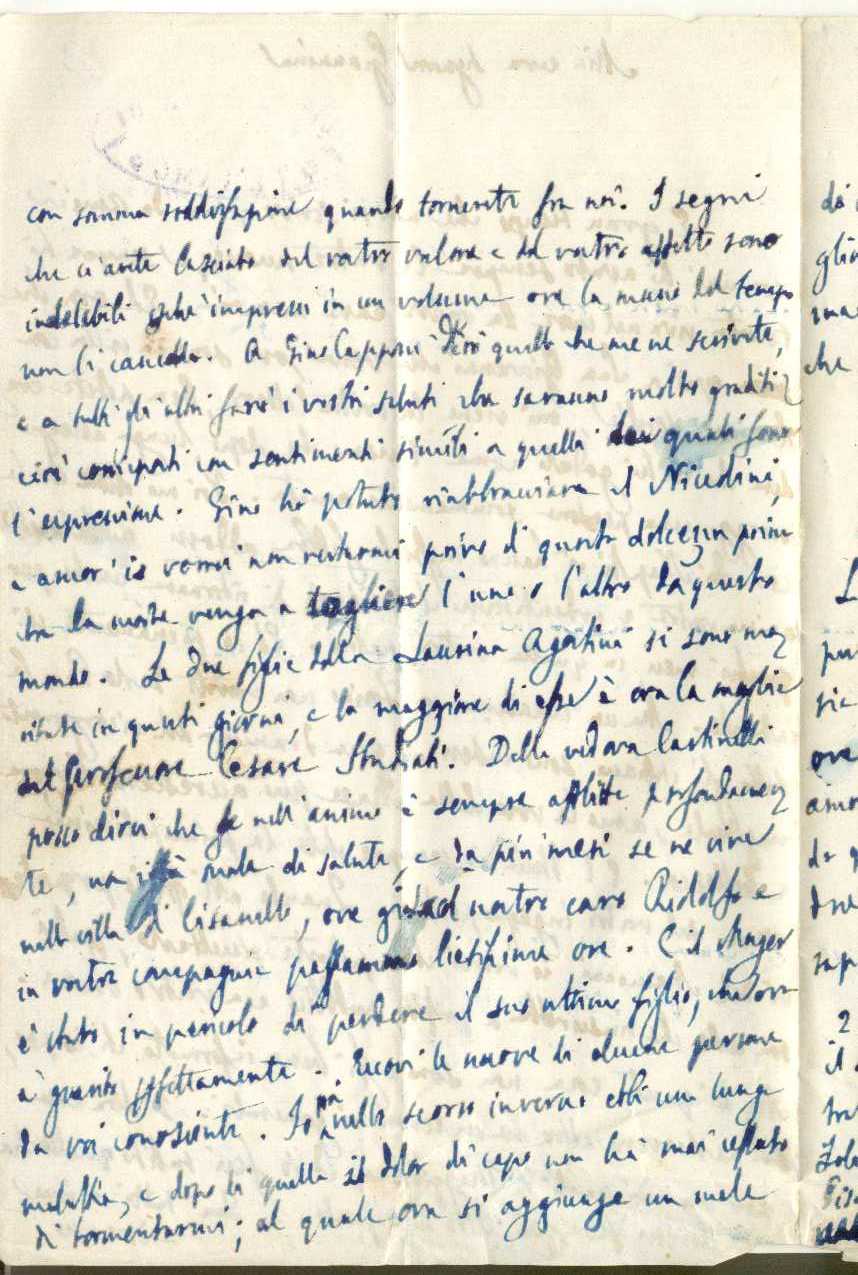 con somma soddisfazione quando tornerete fra noi. I segni
che ci avete lasciato del vostro valore e del vostro affetto sono
indelebili perchè impressi in un volume ove la mano del tempo
non li cancella. A Gino Capponi dirò quello che me ne scrivete,
e a tutti gli altri farò i vostri saluti che saranno molto graditi
corrisposti con sentimenti simili a quelli dei quali sono
l'espressione. Gino hà potuto riabbracciare il Niccolini,
e anch'io vorrei non restarmi privo di questa dolcezza prima
che la morte venga a togliere l'uno o l'altro da questo
mondo. Le due figlie della Laurina Agostini si sono ma=
ritate in questi giorni, e la maggiore di esse è ora la moglie
del Professore Cesare Studiati. Della vedova Castinelli
posso dirvi che se nell'animo è sempre afflitta profondamen=
te, va male di salute, e da più mesi se ne vive
nella villa di Cisanello, ove già col nostro caro Ridolfo e
in vostra compagnia passammo lietissime ore. E il Mayer
è stato in pericolo di perdere il suo ultimo figlio, ma ora
è guarito perfettamente. Eccovi le nuove di alcune persone
da voi conosciute. Io poi nello scorso inverno ebbi una lunga
malattia, e dopo di quella il dolor di capo non hà mai cessato
di tormentarmi; al quale ora si aggiunge un male